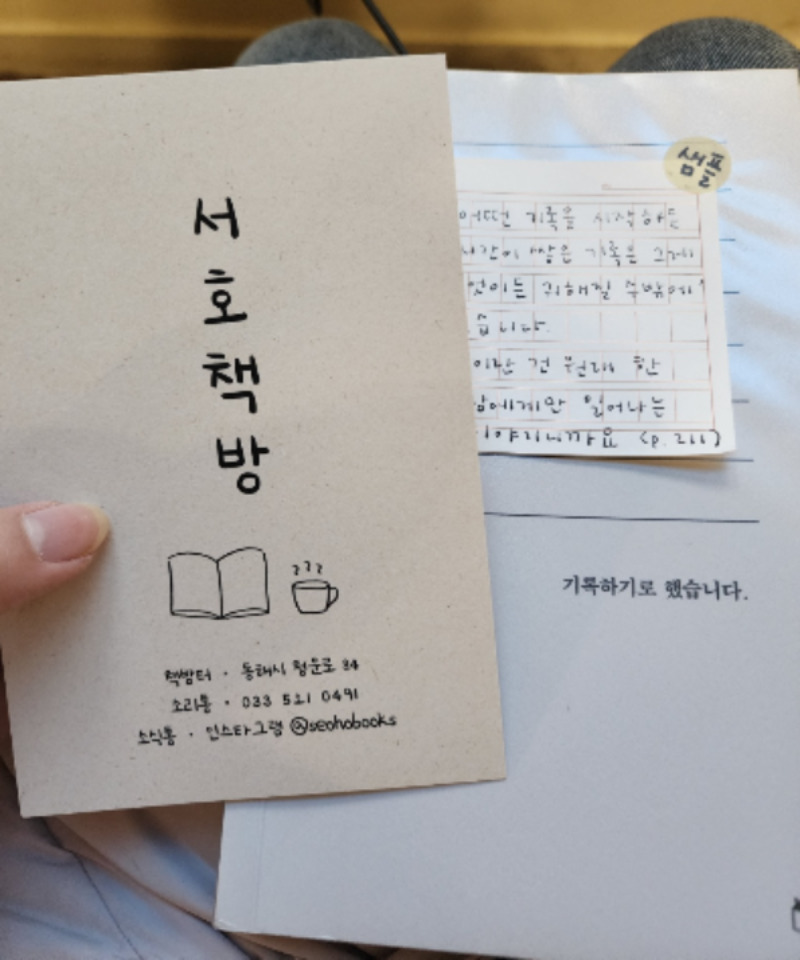 서
호
책
방
책방터 · 동해시 청운로 34
소리통 · 033 521 0491
소식통 · 인스타그램 @seohobooks
샘플
어떤 기록을 시작하든
시간이 쌓은 기록은 그게
무엇이든 귀해질 수밖에
습니다.
이란 건 원래 한
사람에게만 일어나는
이야기니까요 (p.211)
기록하기로 했습니다.